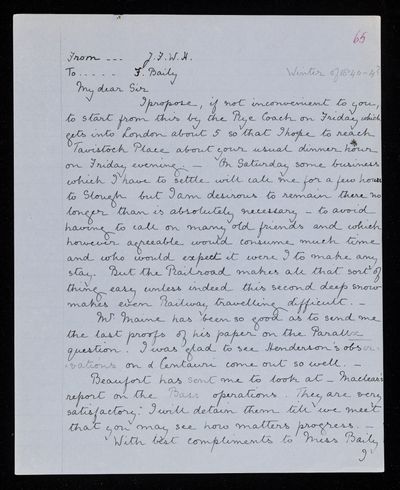 65
From --- J.F.W.H.
To ..... F. Baily
Winter of 1840-41
My dear Sir
I propose, if not inconvenient to you,
to start from this by the Rye Coach on Friday which
gets into London about 5 so that I hope to reach
Tavistock Place about your usual dinner hour
on Friday evening. — On Saturday some business
which I have to settle will call me for a few hours
to Slough but I am desirous to remain there no
longer than is absolutely necessary - to avoid
having to call on many old friends and which
however agreeable would consume much time
and who would expect it were I to make any
stay. But the Railroad makes all that sort of
thing easy unless indeed this second deep snow
makes even Railway travelling difficult. —
Mr Maine has been so good as to send me
the last proofs of his paper on the Parallax
question. I was glad to see Henderson's obser-
-vations on α Centauri come out so well. —
Beaufort has sent me to look at - Maclear's
report on the Base operations. They are very
satisfactory. I will detain them till we meet
that you may see how matters progress. —
With best compliments to Miss Baily
I